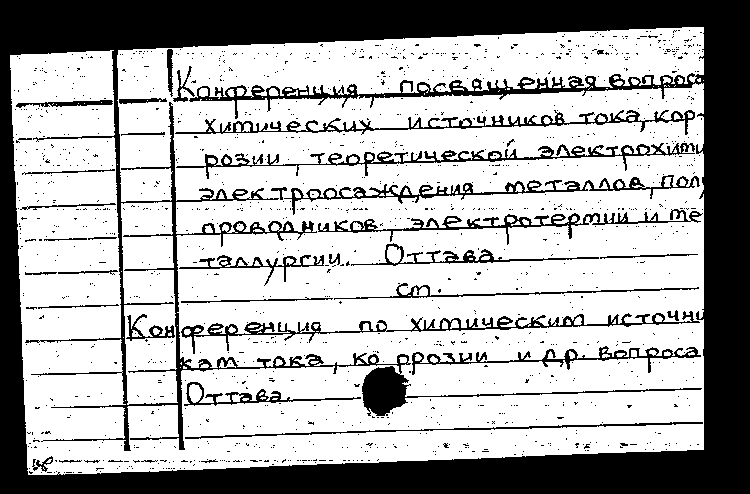 Конференция, посвященная вопроса
химических источников тока, кор-
розии, теоретической электрохими
электроосаждения металлов, полу
проводников, электротермии и ме
таллургии. Оттава.
см.
Конференция по химическим источни
кам тока, коррозии и др. вопроса
Оттава.